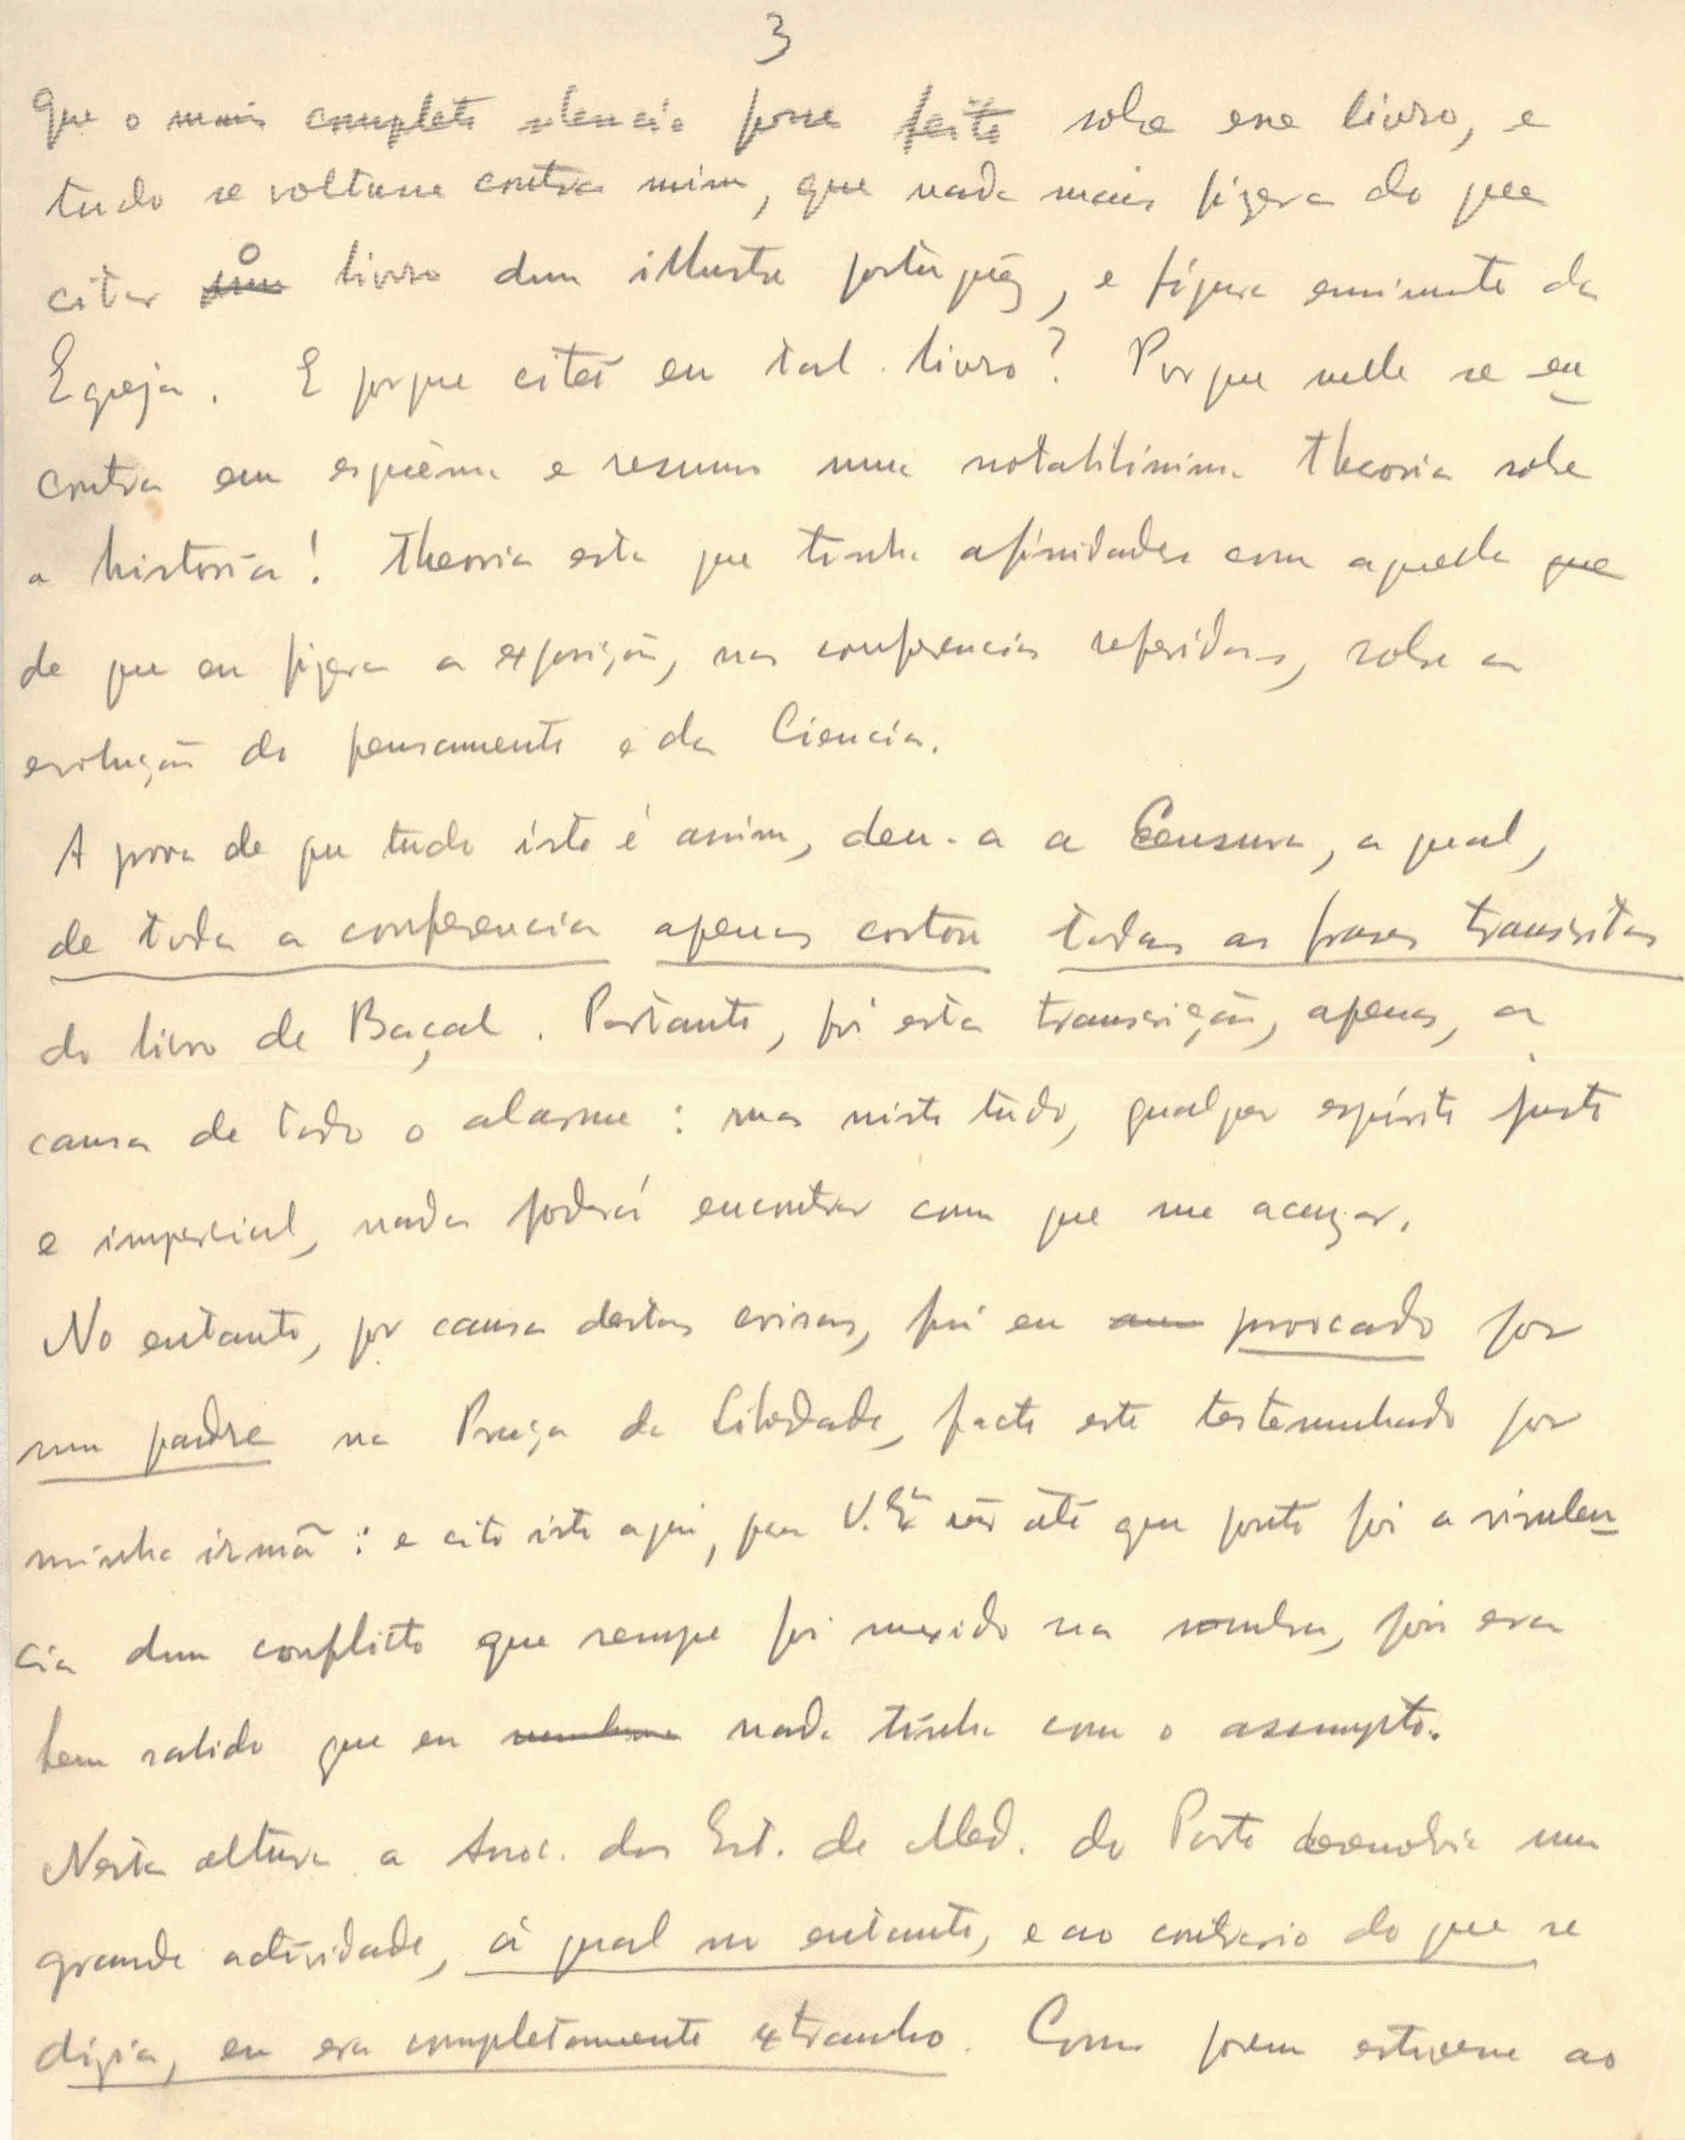 3
Que o mais completo silencio fosse feito sobre esse livro, e
tudo se voltasse contra mim, que nada mais fizera do que
citar o livro dum illustre portuguêz, e figura eminente da
Egreja. E porque citei eu tal livro? Porque nelle se en
contra em esquèma e resumo uma notabilissima theoria sobre
a historia! Theoria esta que tinha afinidades com aquella que
de que eu fizera a exposição, nas conferencias referidas, sobre a
evolução do pensamento e da Ciencia.
A prova de que tudo isto é assim, deu-a a Censura, a qual,
de toda a conferencia apenas cortou todas as frases transcritas
do livro de Baçal. Portanto, foi esta transcrição, apenas, a
causa de todo o alarme: mas nisto tudo, qualquer espírito justo
e imparcial, nada poderá encontrar com que me acuzar.
No entanto, por causa destas coisas, fui eu provocado por
um padre na Praça da Liberdade, facto este testemunhado por
minha irmã: e cito isto aqui, para V. Exª vêr até que ponto foi a virulen
cia dum conflicto que sempre foi mexido na sombra, pois era
bem sabido que eu nada tinha com o assumpto.
Nesta altura a Assoc. dos Est. de Med. do Porto desenvolvia uma
grande actividade, á qual no entanto, e ao contrario do que se
dizia, eu era completamente extranho. Como porem estivesse ao